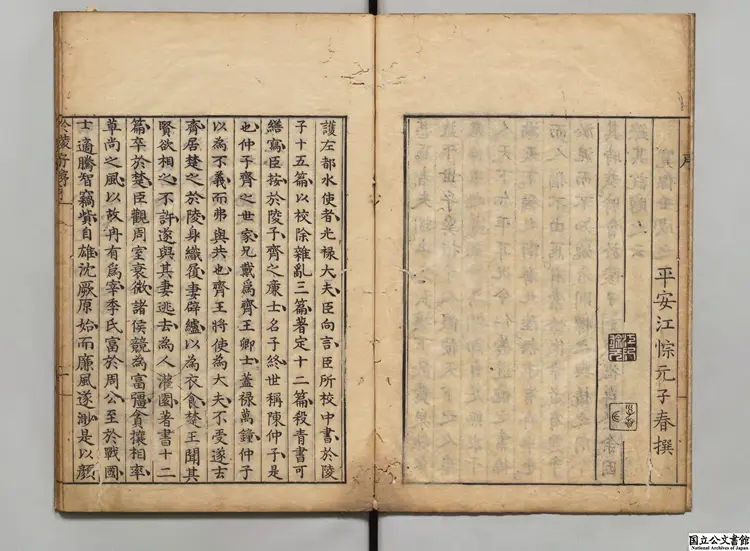 平安江悰元子春撰
護左都水使者光祿大夫臣向言臣所校中書於陵
子十五篇以校除雜亂三篇著定十二篇殺青書可
繕寫臣按於陵子齊之廉士名子終世稱陳仲子是
也仲子齊之世家兄戴爲齊王卿士蓋祿萬鐘仲子
以為不義而弗與共也齊王將使為大夫不受遂去
齊居楚之於陵身織履妻辟纑以為衣食楚王聞其
賢欲相之不許遂與其妻逃去為人灌園著書十二
篇卒於楚臣觀周室衰微諸侯競為富彊貪攘相率
草尚之風以故冉有爲宰季氏富於周公至於戰國
士適騰智竊紫自雄沈厥原始而廉風遂渺是以顏
国立公文書館
National Archives of Japan